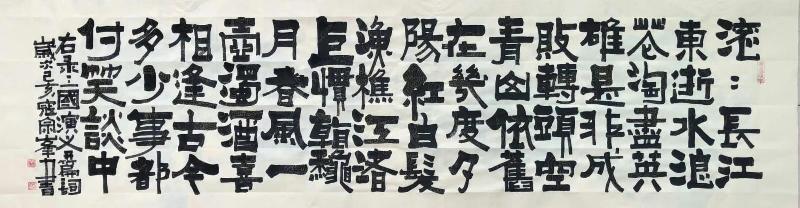 滚:長江
東逝水浪
花淘盡英
雄是非成
敗轉頭空
青山依舊
在幾度夕
陽紅白髮
漁樵江渚
上慣看穐
月春風一
壺濁酒喜
相逢古今
多少事都
付笑談中
右录三國演义开篇詞
歲次己亥書